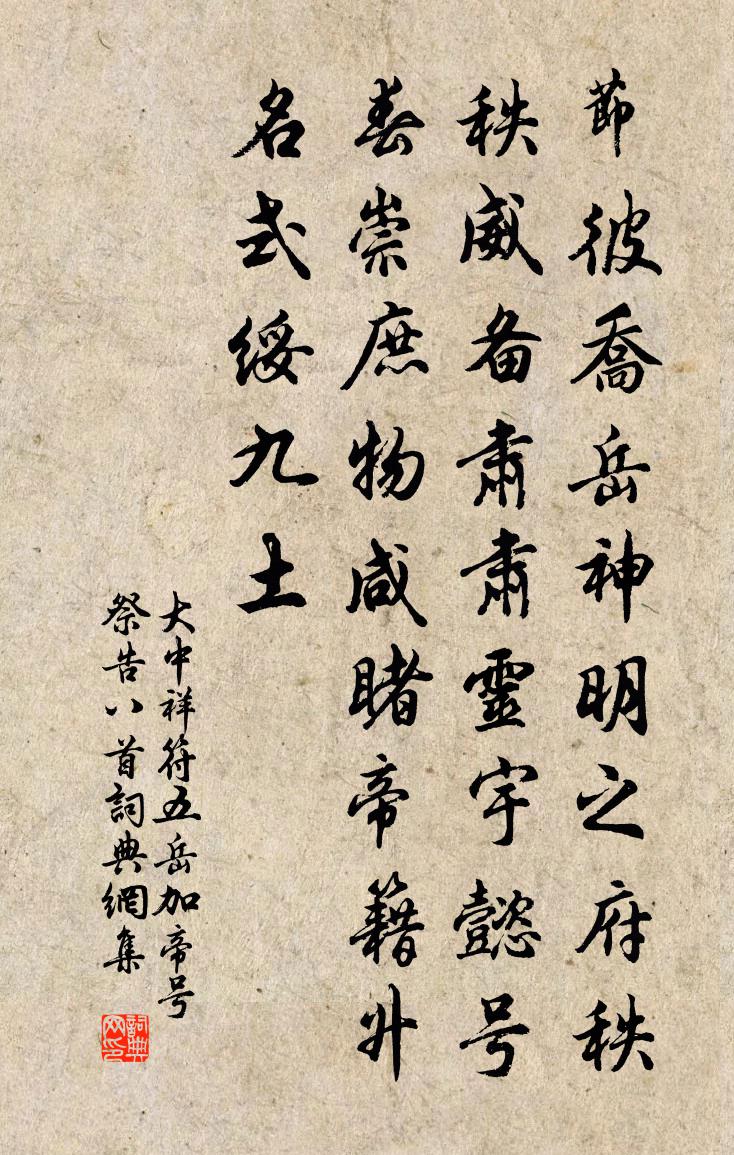 莭彼喬岳神明之府秩
秩威备肃肃靈宇懿号
春崇庶物咸睹帝籍升
名式綏九土
大中祥符五岳加帝号
祭告八首詞典網集
詞典
网印